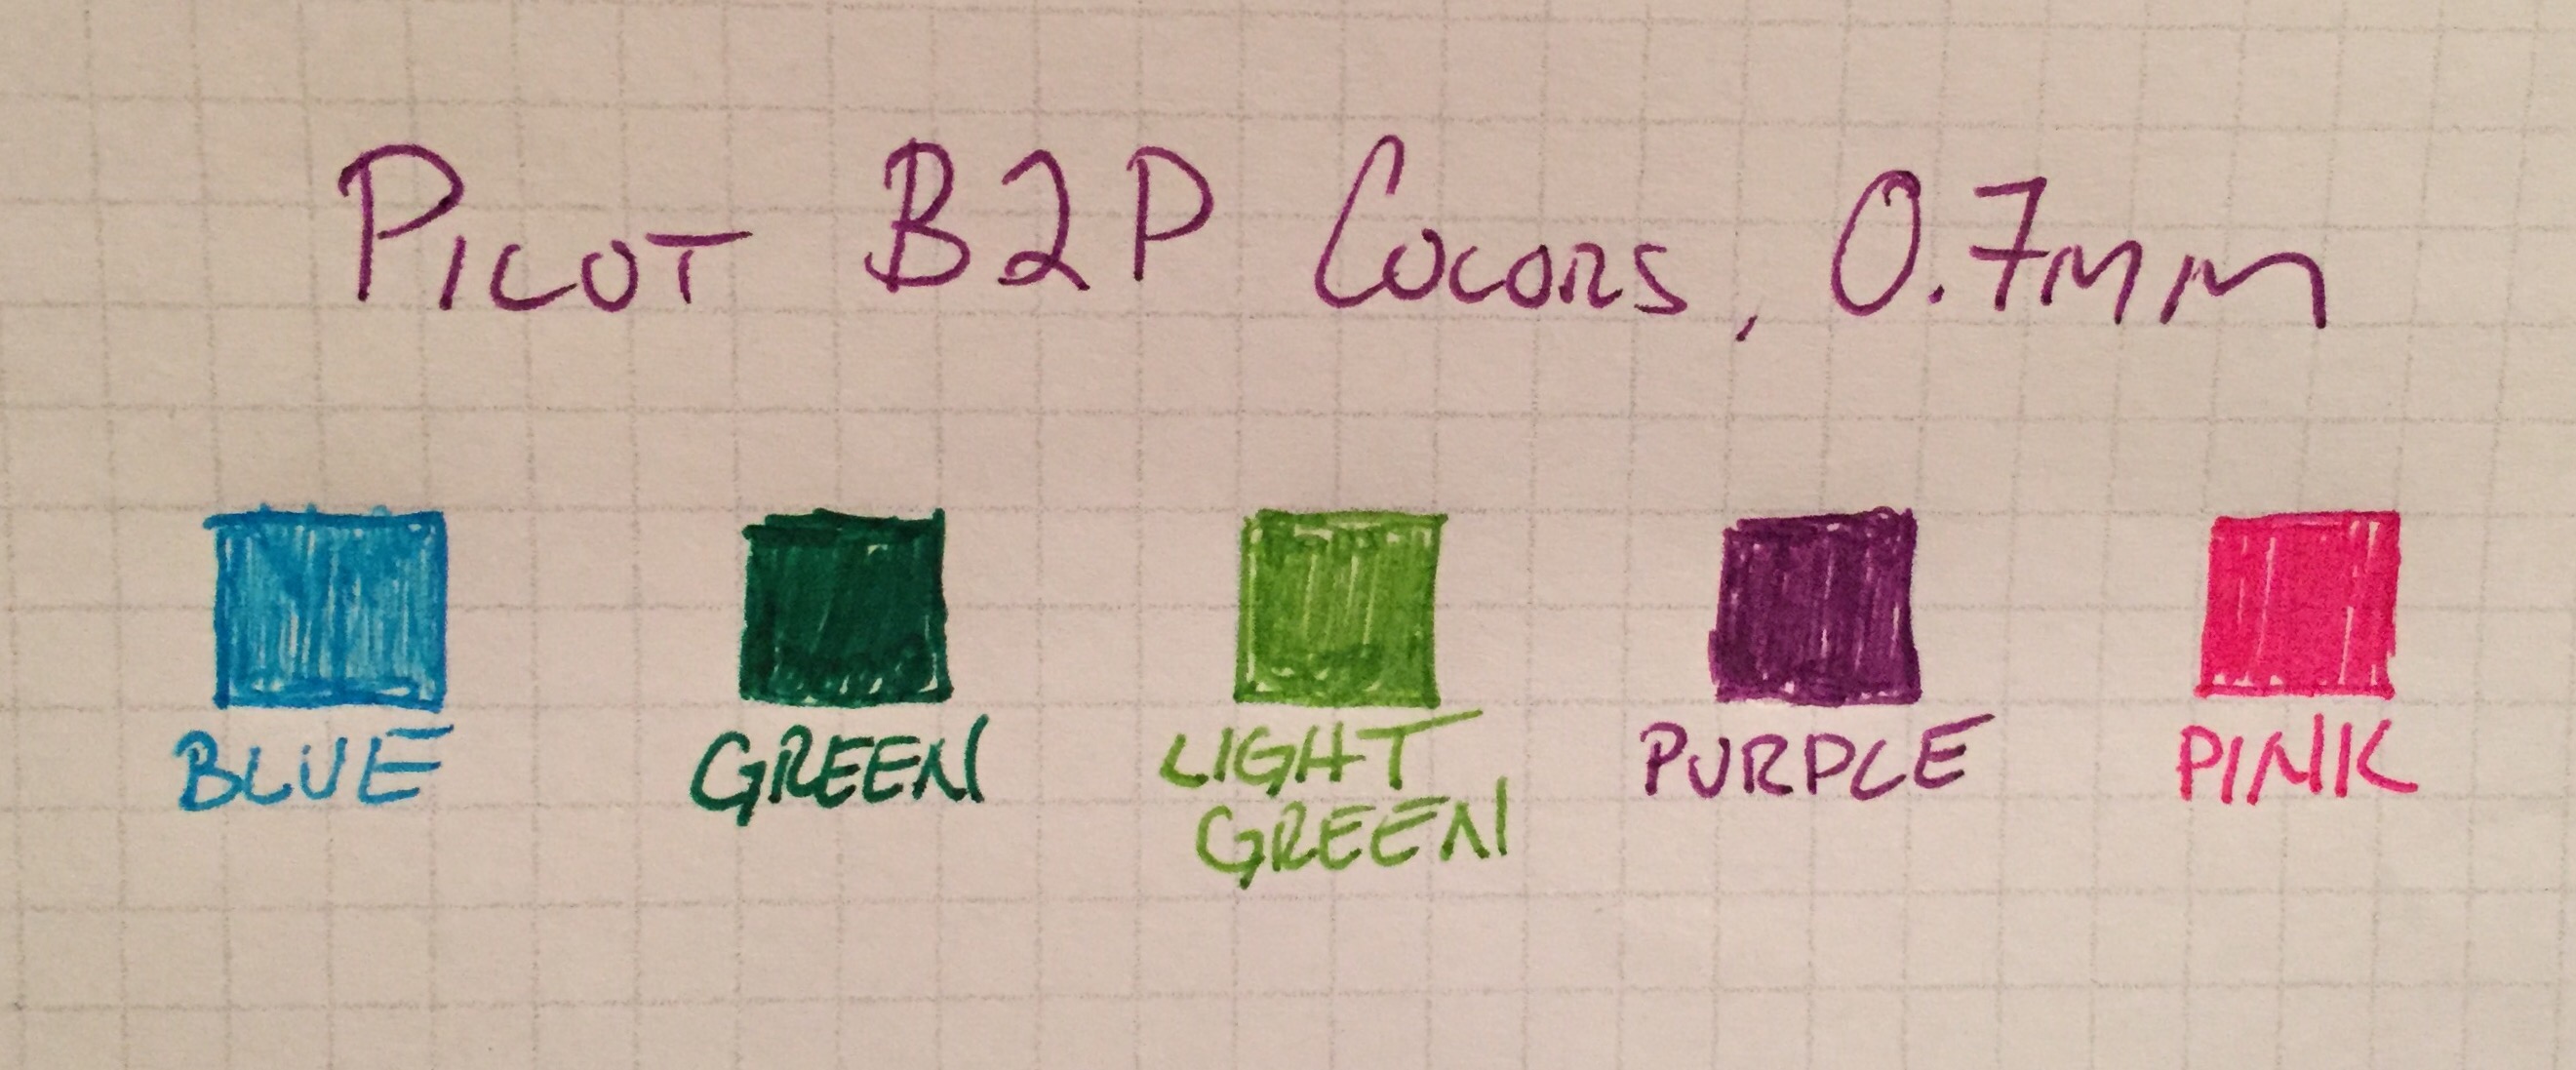 PILOT B2P COLORS, 0.7MM
BLUE
GREEN
LIGHT
GREEN
PURPLE
PINK